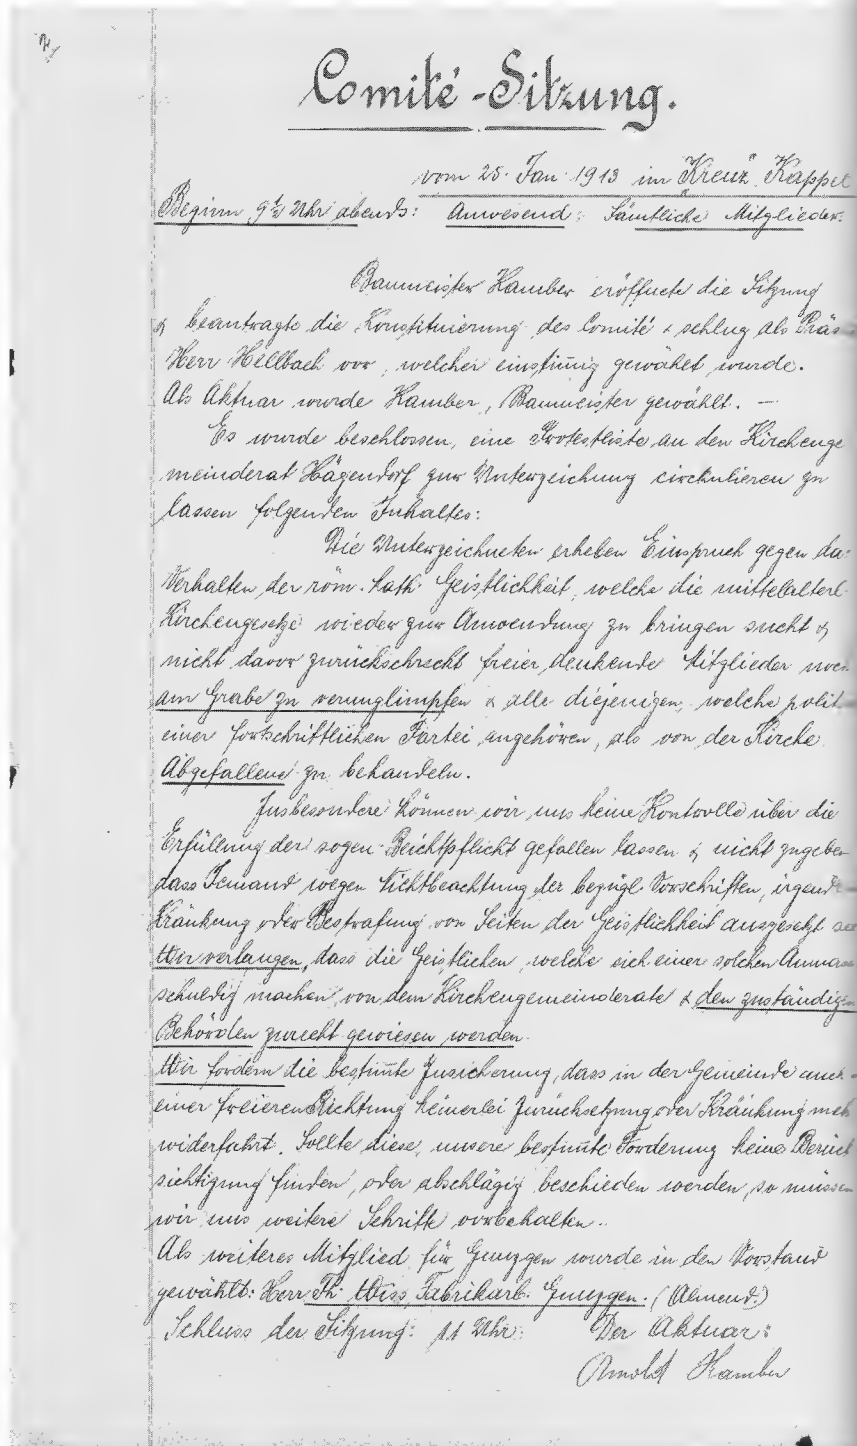 Comité-Sitzung.
vom 25. Jan. 1913 im "Kreuz" Kappel
Beginn 9½ Uhr abends: Anwesend: Sämtliche Mitglieder.
Baumeister Kamber eröffnete die Sitzung
& beantragte die Konstituierung des Comité & schlug als Präs
Herr Hellbach vor, welcher einstim̅ig gewählt wurde.
Als Aktuar wurde Kamber, Baumeister gewählt. —
Es wurde beschlossen, eine Protestliste an den Kirchenge
meinderat Hägendorf zur Unterzeichung circkulieren zu
lassen folgenden Inhaltes:
Die Unterzeichneten erheben Einspruch gegen da
Verhalten der röm. kath. Geistlichkeit, welche die mittelalterl
Kirchengesetze wieder zur Anwendung zu bringen sucht &
nicht davor zurückschreckt freier denkende Mitglieder noc
am Grabe zu verunglimpfen & alle diejenigen, welche polit
einer fortschrittlichen Partei angehören, als von der Kirche
Abgefallene zu behandeln.
Insbesondere können wir uns keine Kontrolle über die
Erfüllung der sogen. Beichtpflicht gefallen lassen & nicht zugeben
dass Jemand wegen Nichtbeachtung der bezügl. Vorschriften, irgend
Kränkung oder Bestrafung von Seiten der Geistlichkeit ausgesetzt
Wir verlangen, dass die Geistlichen, welche sich einer solchen Anma
schuldig machen, von dem Kirchengemeinderate & den zuständigen
Behörden zurecht gewiesen werden.
Wir fordern die bestim̅te Zusicherung, dass in der Gemeinde auch
einer freieren Richtung keinerlei Zurücksetzung oder Kränkung meh
widerfahrt. Sollte diese, unsere bestim̅te Forderung keine Berück
sichtigung finden, oder abschlägig beschieden werden, so müssen
wir uns weitere Schritte vorbehalten.
Als weiteres Mitglied für Gunzgen wurde in den Vorstand
gewählt: Herr Th. Wiss, Fabrikarb. Gunzgen. (Almend.)
Schluss der Sitzung: 11 Uhr. Der Aktuar:
Arnold Kamber